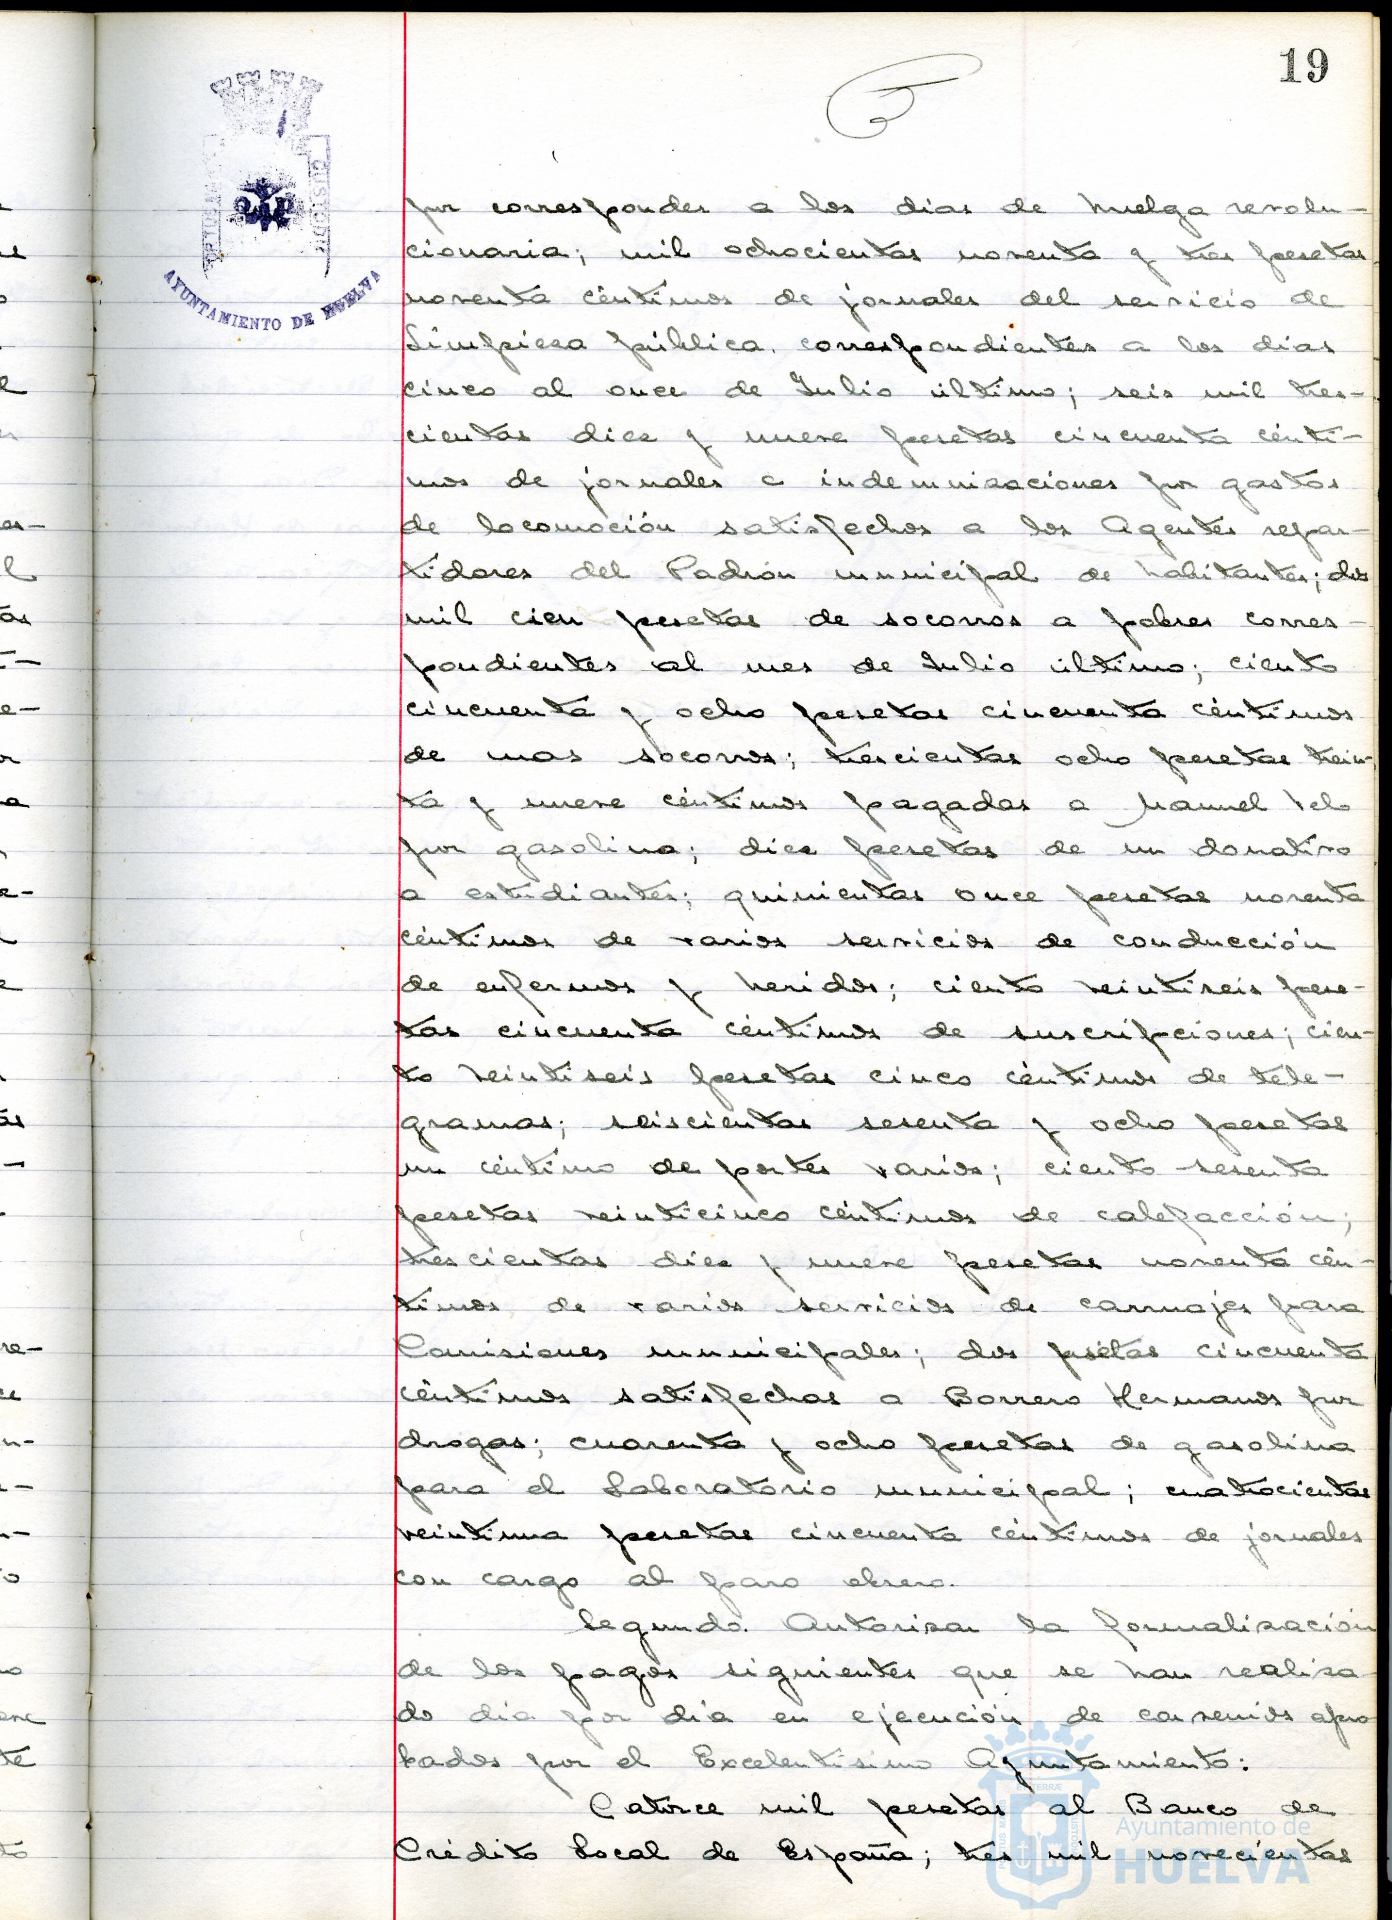 19
AYUNTAMIENTO DE HUELVA
por corresponder a los dias de huelga revolu-
cionaria; mil ochocientas noventa y tres pesetas
noventa céntimos de jornales del servicio de
Limpieza pública, correspondientes a los dias
cinco al once de Julio último; seis mil tres-
cientas diez y nueve pesetas cincuenta cénti-
mos de jornales e indemnizaciones por gastos
de locomoción satisfechos a los Agentes repar-
tidores del Padrón municipal de habitantes; dos
mil cien pesetas de socorros a pobres corres-
pondientes al mes de Julio último; ciento
cincuenta y ocho pesetas cincuenta céntimos
de mas socorros; trescientas ocho pesetas trein-
ta y nueve céntimos pagadas a Manuel Velo
por gasolina; diez pesetas de un donativo
a estudiantes; quinientas once pesetas noventa
céntimos de varios servicios de conducción
de enfermos y heridos; ciento veintiseis pese-
tas cincuenta céntimos de suscripciones; cien-
to veintiseis pesetas cinco céntimos de tele-
gramas; seiscientas sesenta y ocho pesetas
un céntimo de portes varios; ciento sesenta
pesetas veinticinco céntimos de calefacción;
trescientas diez y nueve pesetas noventa cén-
timos de varios servicios de carruajes para
Comisiones municipales; dos psétas cincuenta
céntimos satisfechas a Borrero Hermanos por
drogas; cuarenta y ocho pesetas de gasolina
para el Laboratorio municipal; cuatrocientas
veintinna pesetas cincuenta céntimos de jornales
con cargo al paro obrero.
Segundo. Autorizar la formalización
de los pagos siguientes que se han realiza-
do dia por dia en ejecución de convenios apro
bados por el Excelentísimo Ayuntamiento:
Catorce mil pesetas al Banco de
Crédito Local de España; tres mil novecientas
Ayuntamiento de
HUELVA